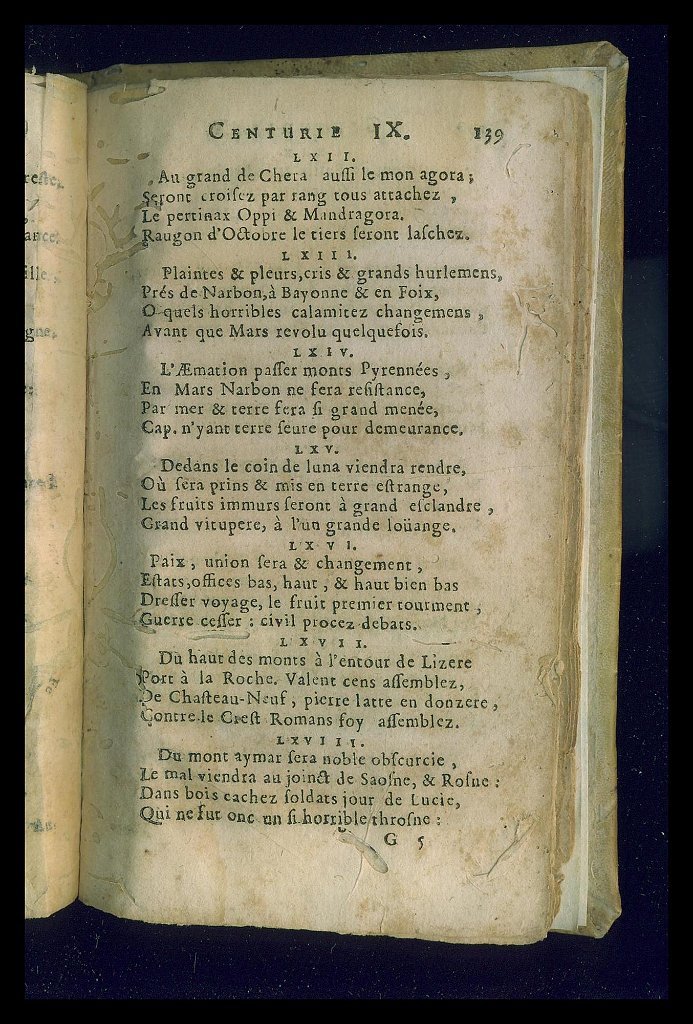 CENTURIE IX. 139
LXII.
Au grand de Chera auſſi le mon agora;
Seront croiſez par rang tous attachez,
Le pertinax Oppi & Mandragora.
Raugon d'Octobre le tiers ſeront laſchez.
LXIII.
Plaintes & pleurs, cris & grands hurlemens,
Prés de Narbon, à Bayonne & en Foix,
O quels horribles calamitez changemens,
Avant que Mars revolu quelquefois.
LXIV.
L'Æmation paſſer monts Pyrennées,
En Mars Narbon ne fera reſiſtance,
Par mer & terre fera ſi grand menée,
Cap. n'yant terre ſeure pour demeurance.
LXV.
Dedans le coin de luna viendra rendre,
Où ſera prins & mis en terre eſtrange,
Les fruits immurs ſeront à grand eſclandre,
Grand vitupere, à l'un grande loüange.
LXVI.
Paix, union ſera & changement,
Eſtats, offices bas, haut, & haut bien bas
Dreſſer voyage, le fruit premier tourment,
Guerre ceſſer: civil procez debats.
LXVII.
Du haut des monts à l'entour de Lizere
Port à la Roche. Valent cens aſſemblez,
De Chaſteau-Neuf, pierre latte en donzere,
Contre le Creſt Romans foy aſſemblez.
LXVIII.
Du mont aymar ſera noble obſcurcie,
Le mal viendra au joinct de Saoſne, & Roſne:
Dans bois cachez ſoldats jour de Lucie,
Qui ne fut onc un ſi horrible throſne:
G 5